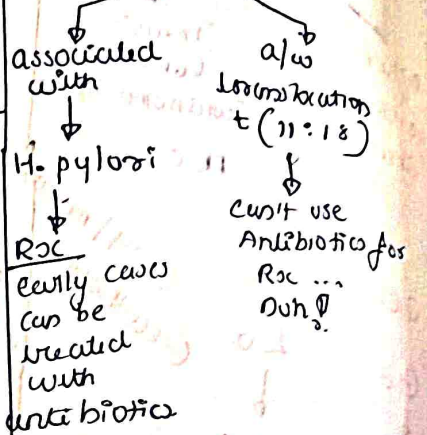 associated
with
H. pylori
Rx
early cases
can be
treated
with
antibiotics
a/w
translocation
t (11:18)
can't use
Antibiotics for
Rx ...
Duh!